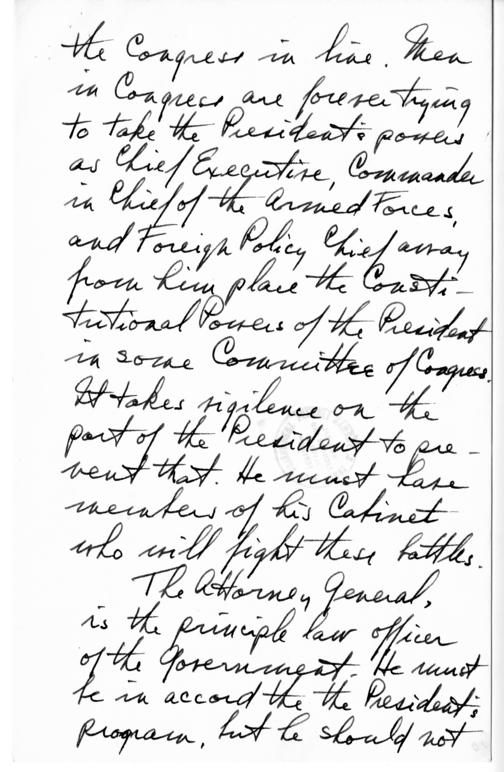 the Congress in line. Men
in Congress are forever trying
to take the President's powers
as Chief Executive, Commander
in Chief of the Armed Forces,
and Foreign Policy Chief away
from him place the Consti-
tutional Powers of the President
in some Committee of Congress.
It takes vigilence on the
part of the President to pre-
vent that. He must have
members of his Cabinet
who will fight these battles.
The Attorney General,
is the principle law officer
of the Government. He must
be in accord the the President's
program, but he should not